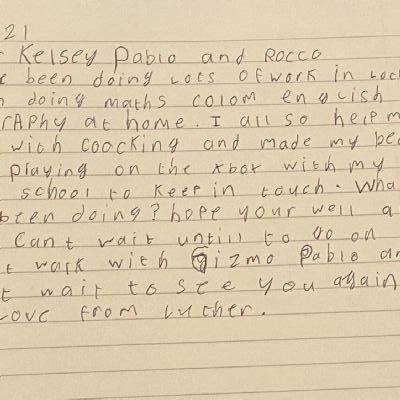 21
Kelsey Pablo and Rocco
been doing lots of work in Loc
doing maths colom english
raphy at home. I all so help m
with coacking and made my be
playing on the xbox with my
school to keep in touch. Wha
been doing? hope your well a
Cant wait untill to go on
t walk with gizmo Pablo an
t wait to see you again
Love from Lucher.